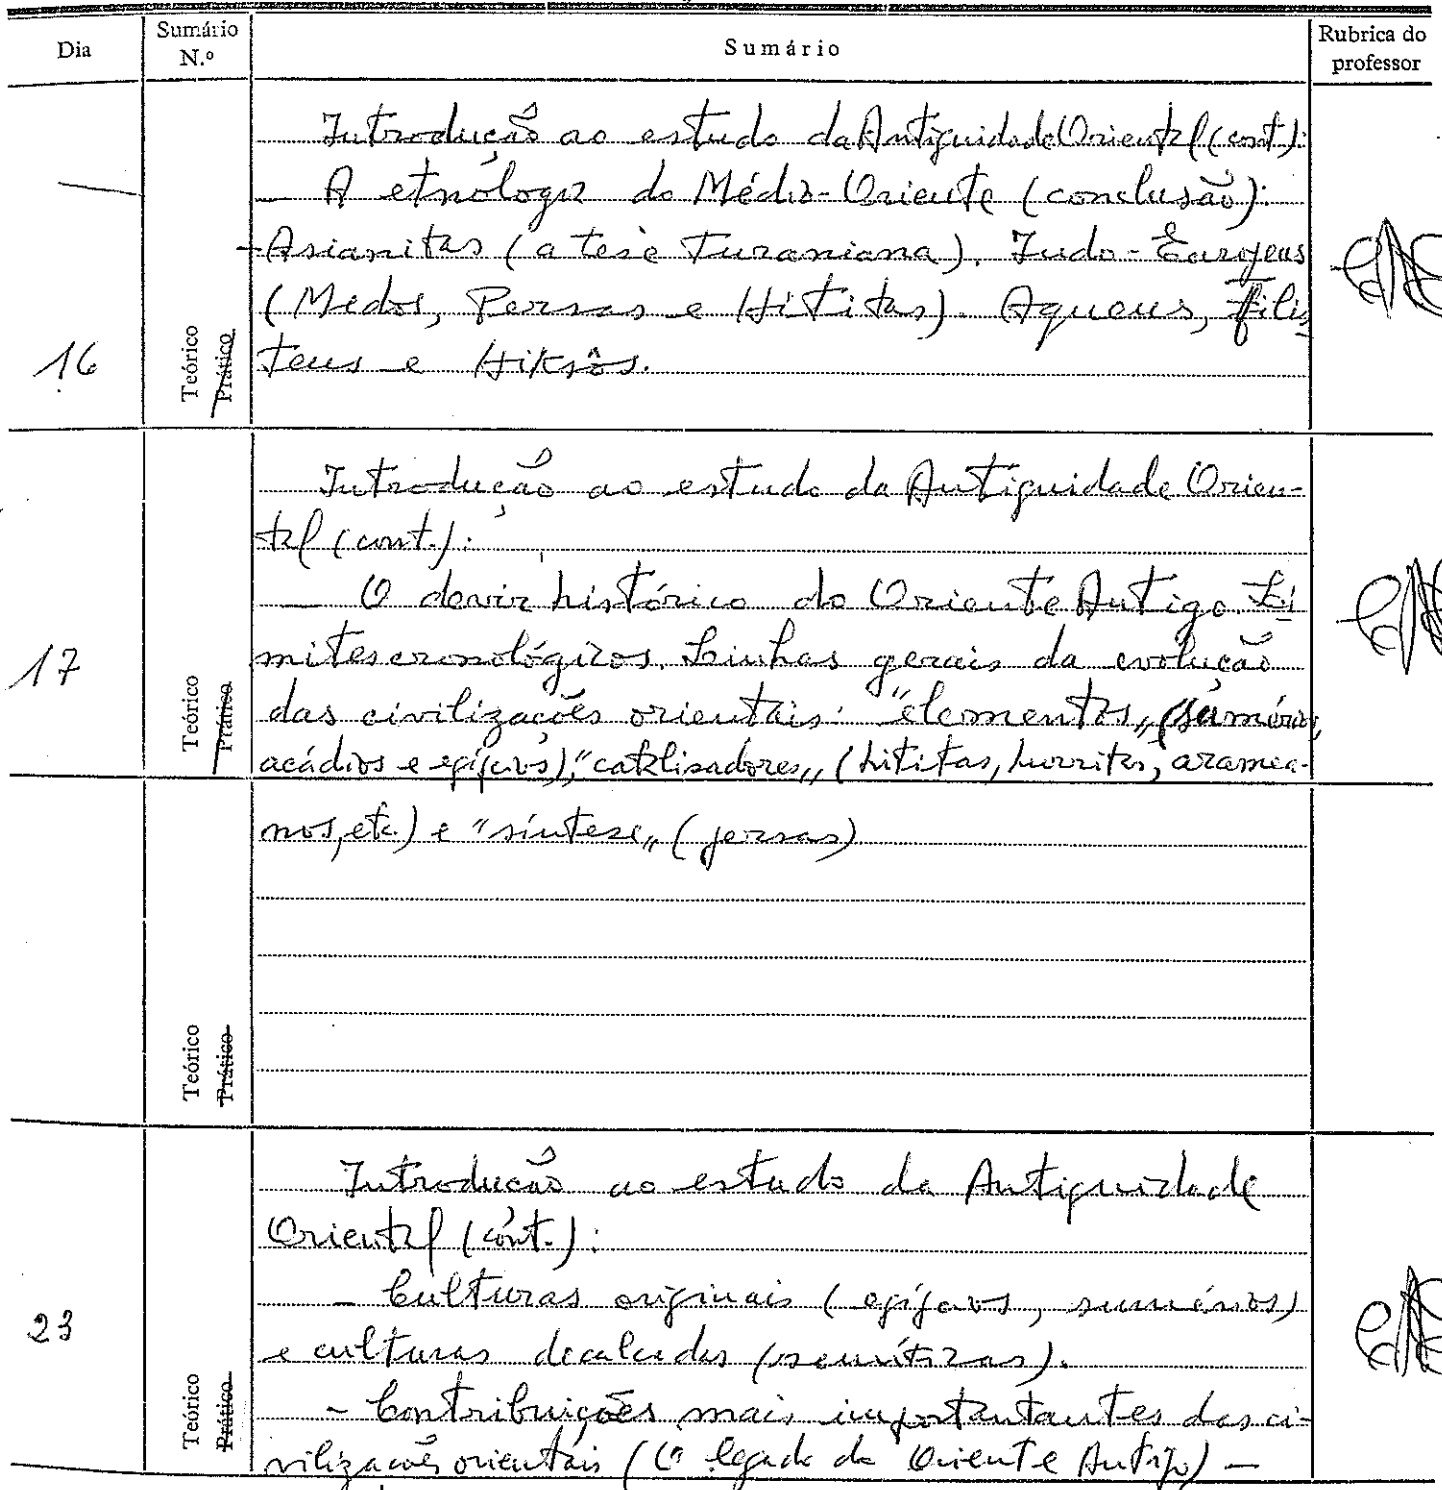 Dia Sumário N.º Sumário Rubrica do professor
Introdução ao estudo da Antiguidade Oriental (cont.):
— A etnologia do Médio-Oriente (conclusão):
Asianitas (a tese Turaniana). Indo-Europeus
(Medos, Persas e Hititas). Aqueus, Filis
16 Teórico Prático teus e Hiksôs.
Introdução ao estudo da Antiguidade Orien-
tal (cont.):
— O devir histórico do Oriente Antigo. Li
17 mites cronológicos. Linhas gerais da evolução
Teórico Prático das civilizações orientais: "elementos" (sumérios,
acádios e egípcios), "catalisadores" (hititas, hurritas, aramea-
nos, etc.) e "síntese" (persas)
Teórico Prático
Introdução ao estudo da Antiguidade
Oriental (cont.):
— Culturas originais (egípcios, sumérios)
23 e culturas decalcadas (semíticas).
Teórico Prático - Contribuições mais importantantes das ci-
vilizações orientais (O legado do Oriente Antigo) —